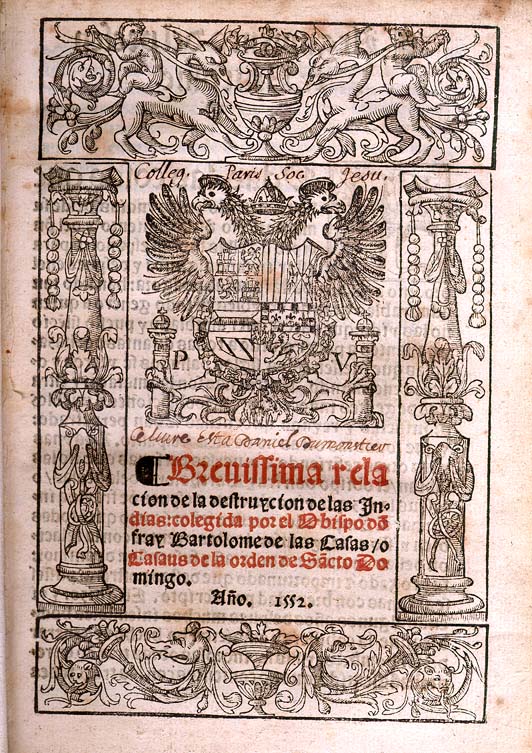 Colleg. Paris Soc. Jesu.
P V
Ce livre est a Daniel Dumonstier
Breuissima rela
cion de la destruycion de las In-
dias: colegida por el Obispo dõ
fray Bartolome de las Casas / o
Casaus de la orden de Sãcto Do
mingo.
Año. 1552.